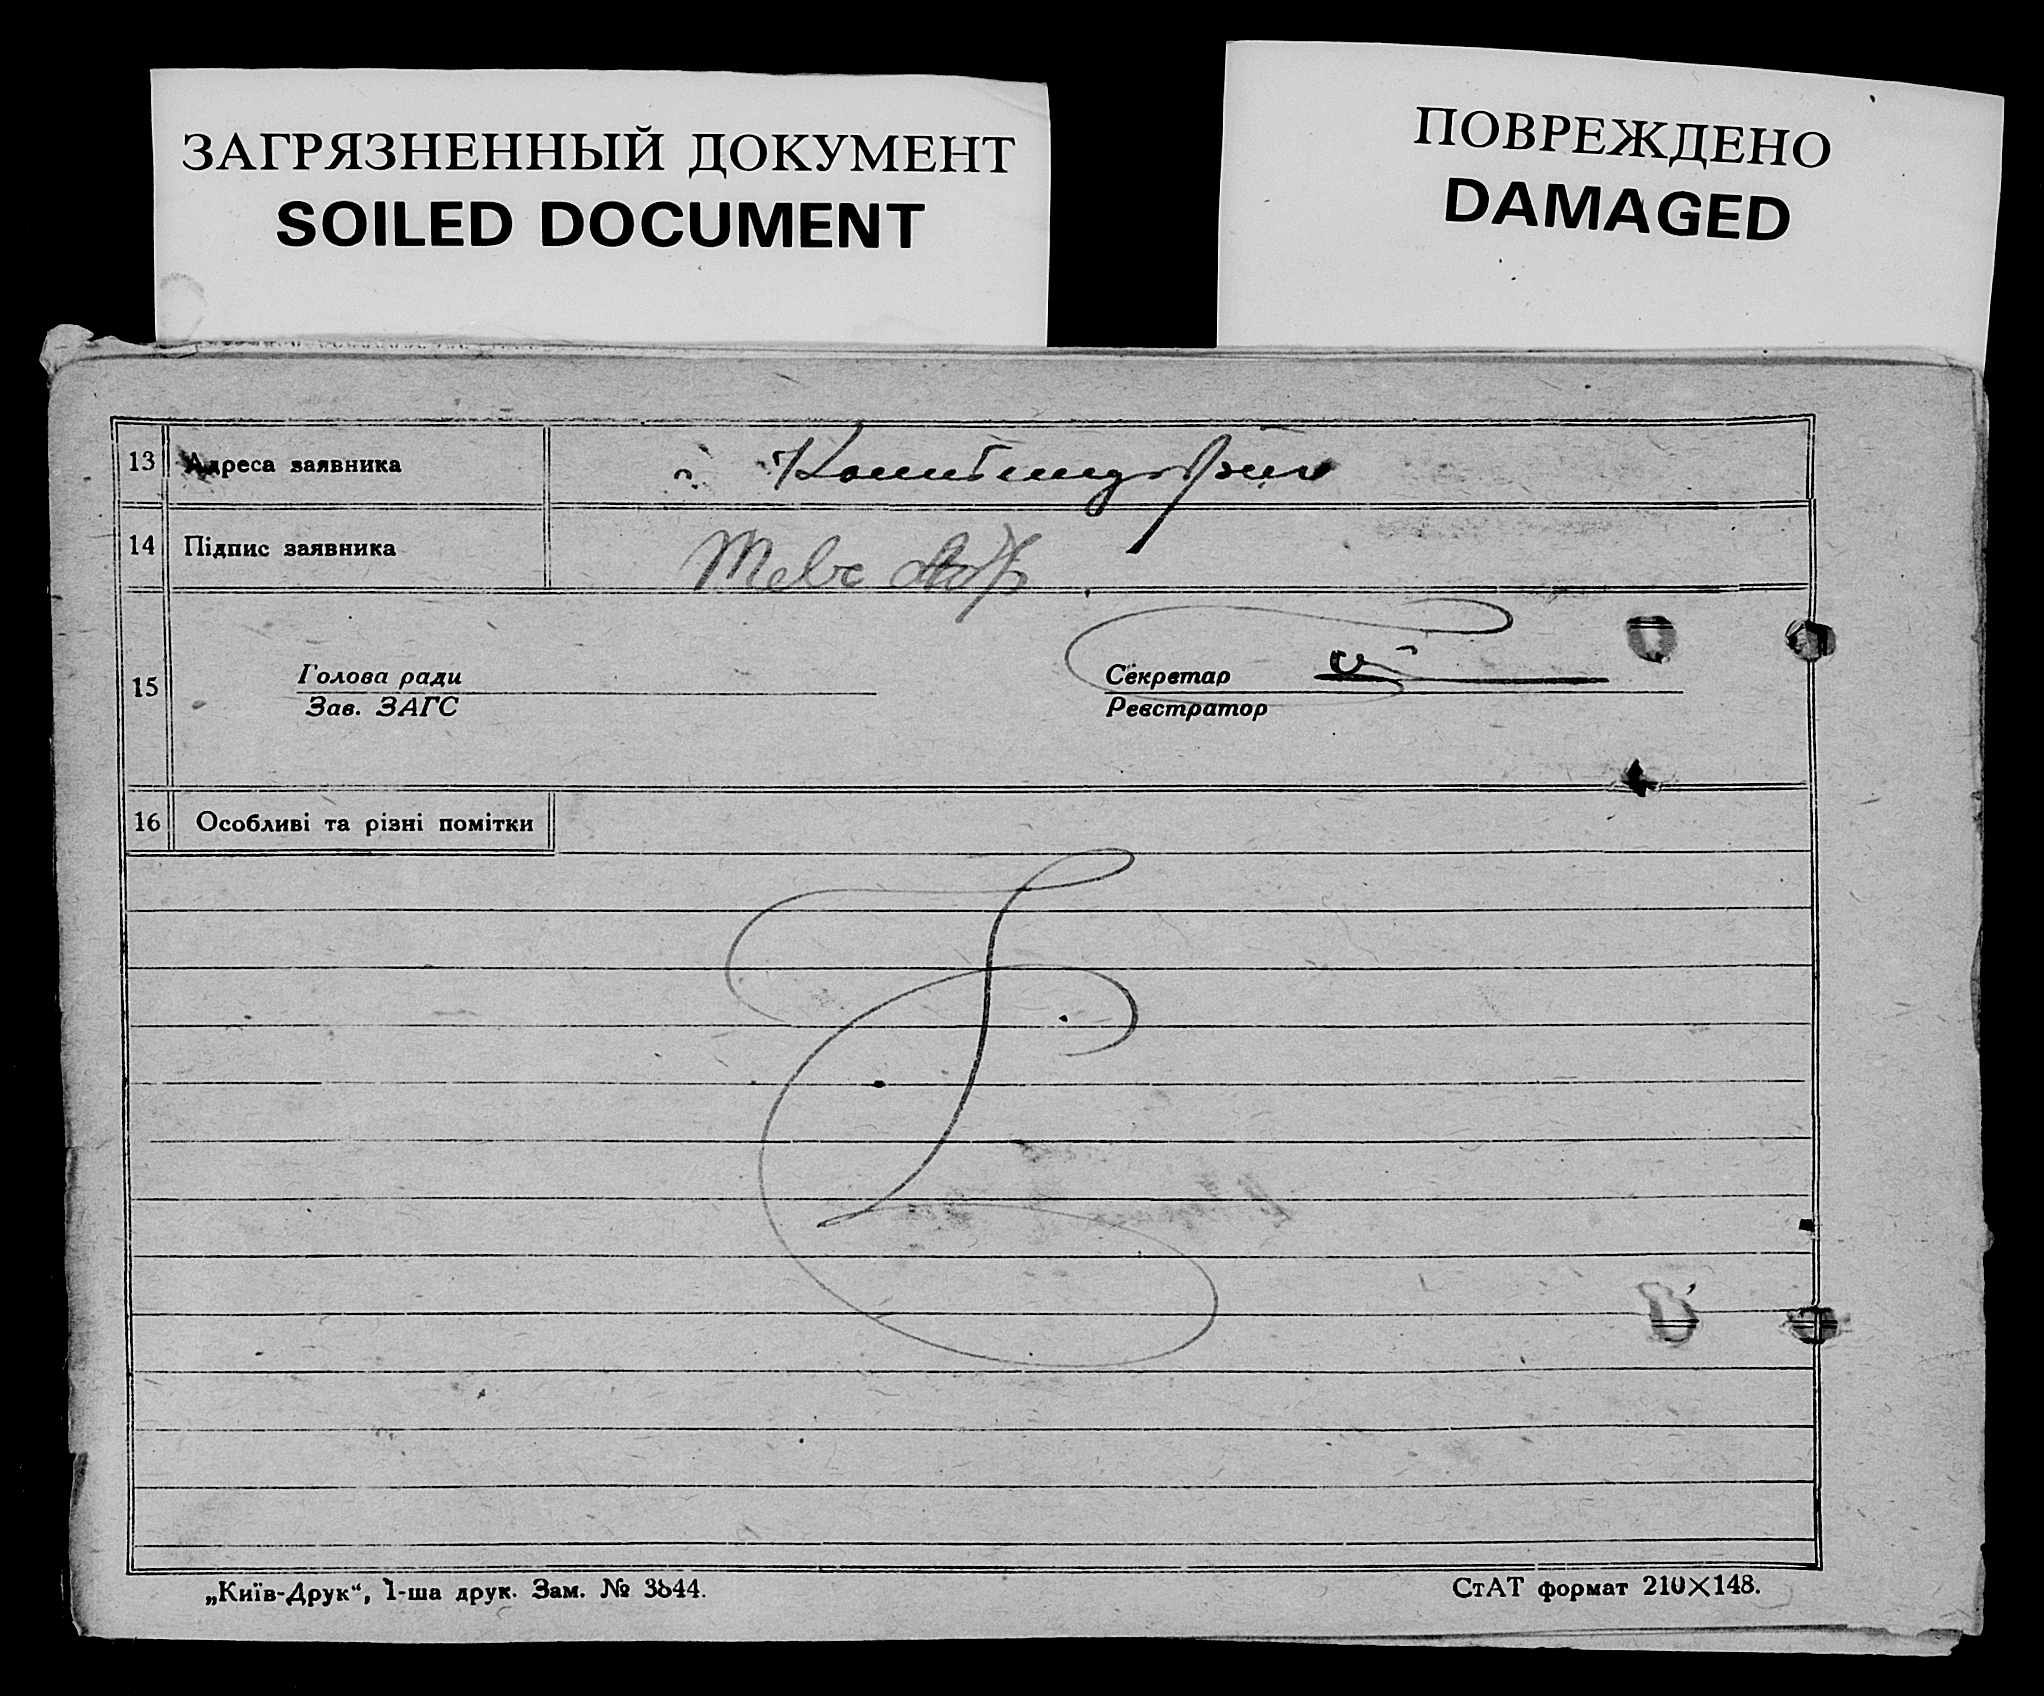 ЗАГРЯЗНЕННЫЙ ДОКУМЕНТ
SOILED DOCUMENT
ПОВРЕЖДЕНО
DAMAGED
13 Адреса заявника
14 Підпис заявника
15
Голова ради
Зав. ЗАГС
Секретар
Реєстратор
16 Особливі та різні помітки
„Київ-Друк“, 1-ша друк. Зам. № 3844.
СтАТ формат 210×148.